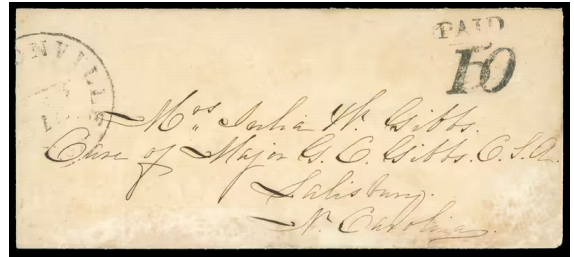 ONVILL
PAID
5
10
Mrs. Julia W. Gibbs.
Care of Major G. C. Gibbs. C. S. A.
Salisbury.
N. Carolina.